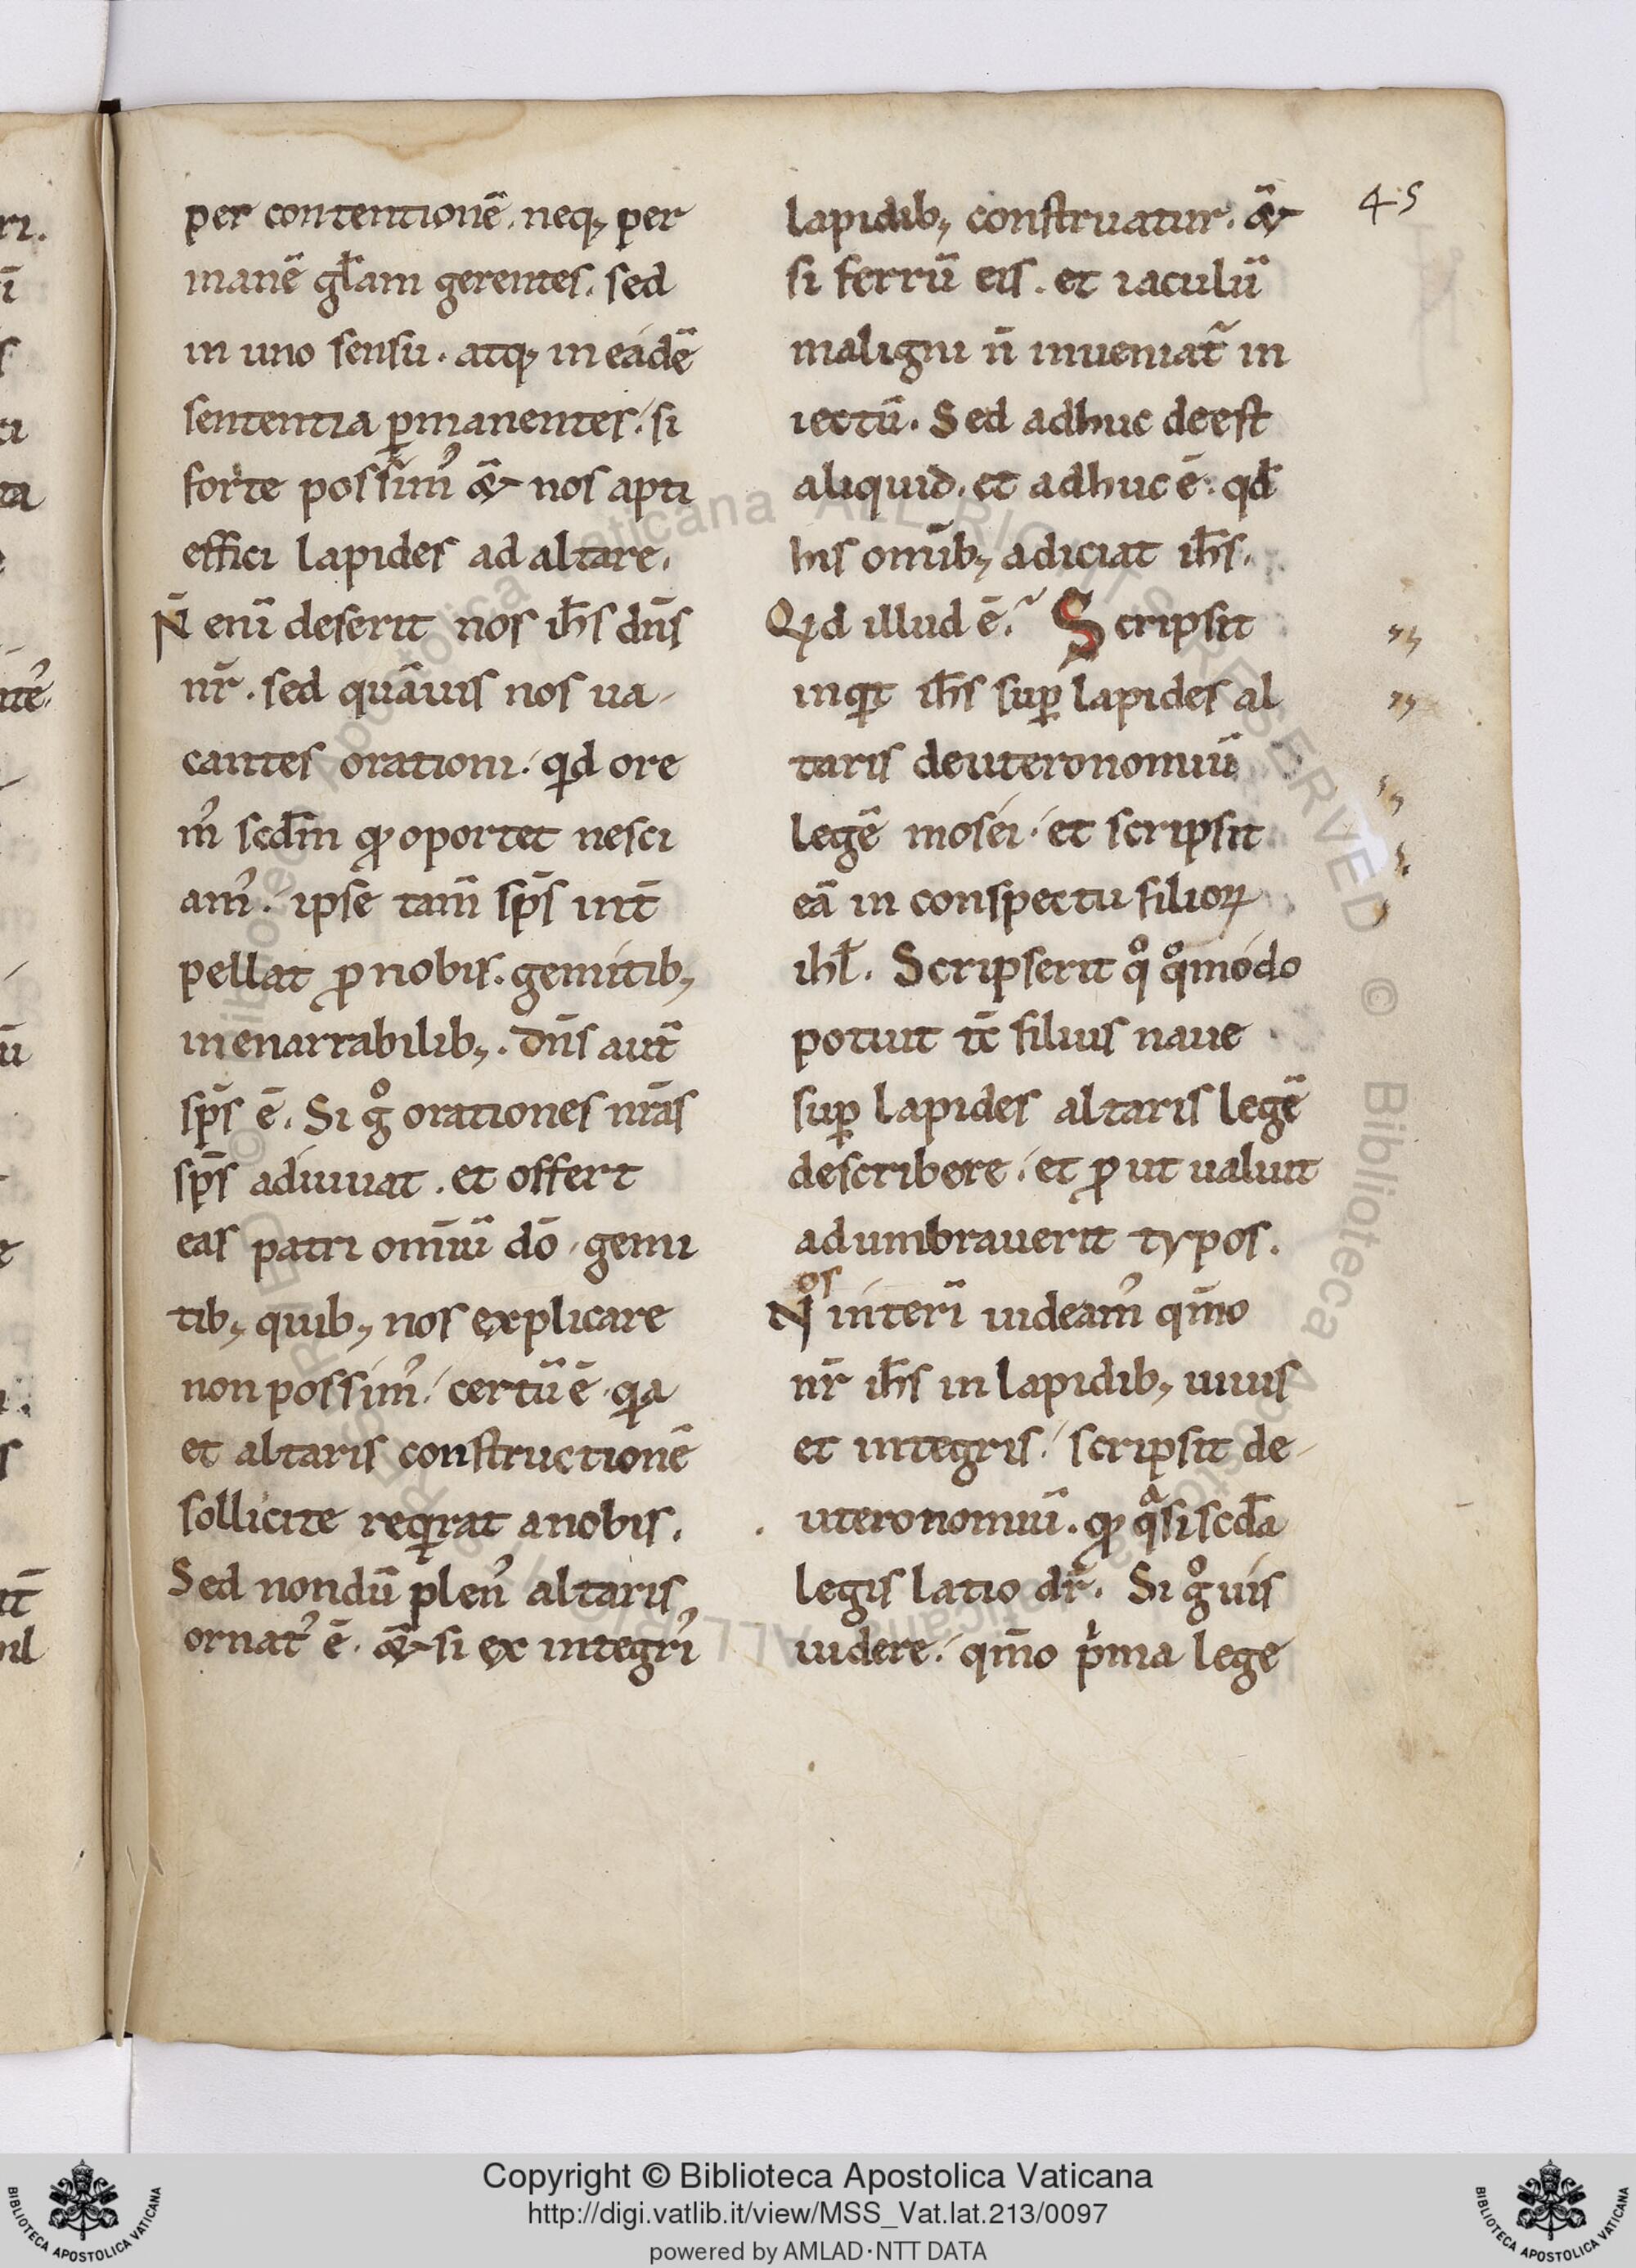 per contentionē. neq; per
inanē gl̄am gerentes. sed
in uno sensu. atq; in eādē
sententia ꝑmanentes. si
forte possim᾽ & nos apti
effici lapides ad altare.
N̄ eni᷄ deserit nos ih̄s dn̄s
nr̄. sed quāuis nos ua-
cantes orationi. qd ore
m᾽ scdm̄ qd oportet nesci
am᾽. ipse tam̄ sp̄s int̄
pellat ꝓ nobis. gemitib;
inenarrabilib;. Dn̄s aut̄
sp̄s ē. Si gͦ orationes nr̄as
sp̄s adiuuat. et offert
eas patri om̄iū dō. gemi
tib; quib; nos explicare
non possim᾽. certū ē. qa
et altaris constructionē
sollicite reqrat a nobis.
Sed nondū plen᾽ altaris
ornat᾽ ē. & si ex integri᾽
lapidib; construatur. &
si ferrū eis. et iaculū
maligni n̄ inueniat᷑ in
iectū. Sed adhuc deest
aliquid. et adhuc ē. qd̄
his om̄ib; adiciat ih̄s.
Qd illud ē? Scripsit
inqt ih̄s suꝑ lapides al
taris deuteronomiū
legē mosei. et scripsit
eā in conspectu filioꝝ
ih̄l. Scripserit qͦ qͦmodo
potuit it̄ filius naue
suꝑ lapides altaris legē
describere. et ꝓut ualuit
adumbrauerit typos.
Nos interī uideam᾽ qm̄o
nr̄ ih̄s in lapidib; uiuis
et integris. scripsit de-
uteronomiū. qd qͣsi scd̄a
legis latio dr̄. Si gͦ uis
uidere. qm̄o pͥma lege
45
© Biblioteca Apostolica Vaticana ALL RIGHTS RESERVED
Copyright © Biblioteca Apostolica Vaticana
http://digi.vatlib.it/view/MSS_Vat.lat.213/0097
powered by AMLAD·NTT DATA
BIBLIOTECA APOSTOLICA VATICANA
BIBLIOTECA APOSTOLICA VATICANA